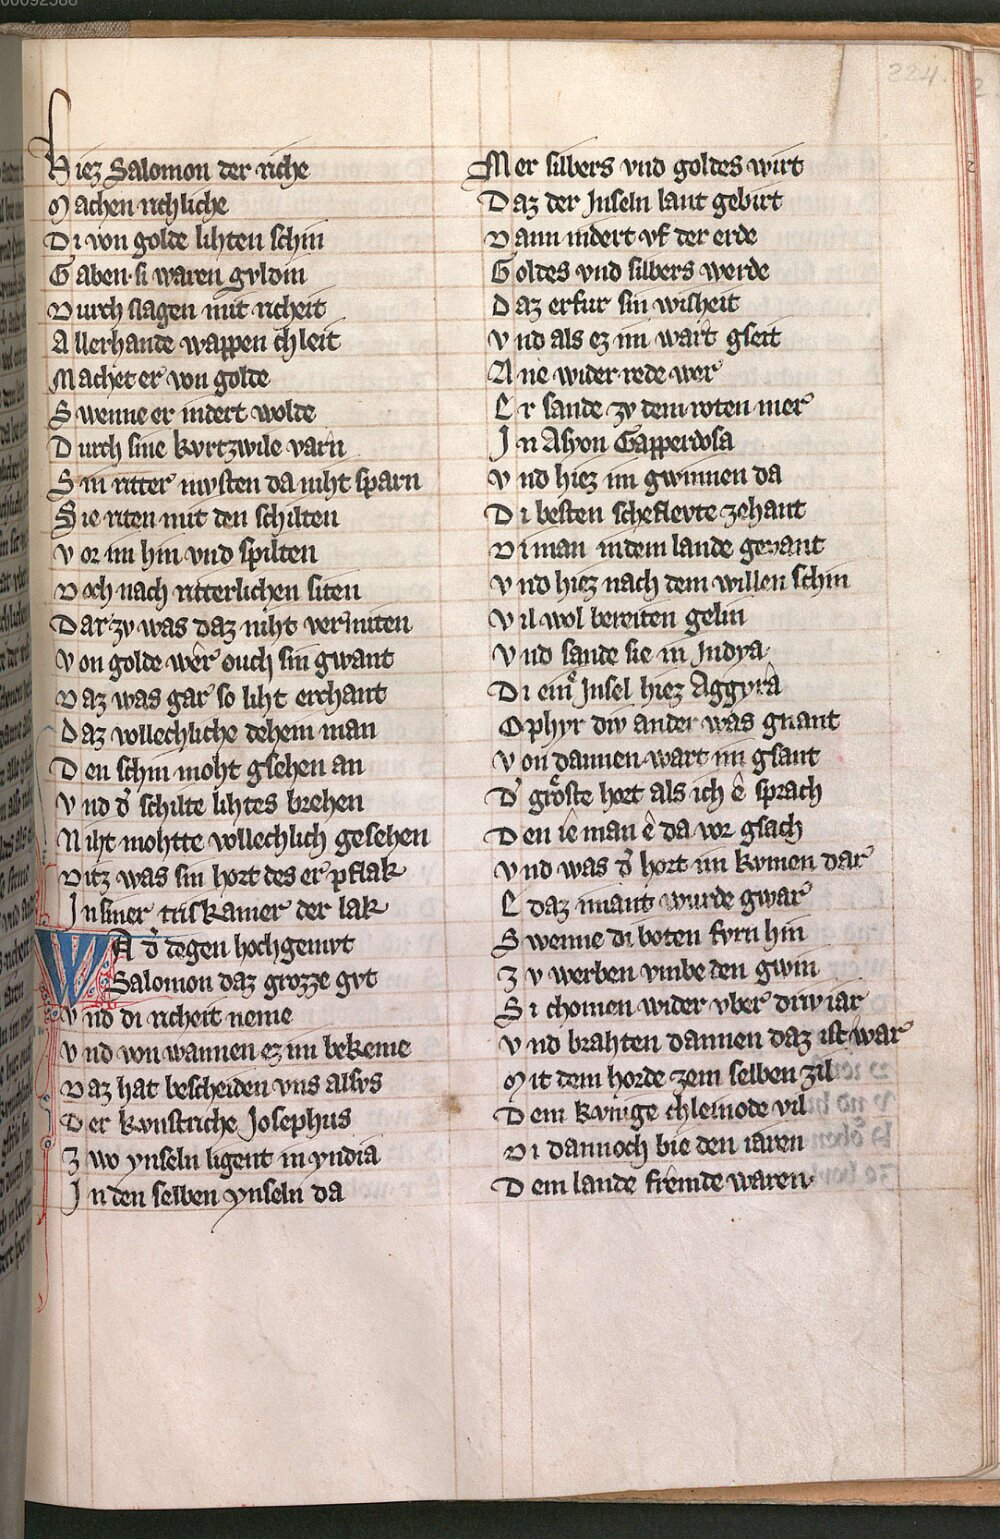 00092588
224.
Hiez Salomon der riche
Machen richliche
Di von golde lihten schin
Gaben si waren gvldin
Durch slagen mit richeit
Allerhande wappen chleit
Machet er von golde
Swenne er indert wolde
Durch sine kvrtzwile varn
Sin ritter mvsten da niht sparn
Sie riten mit den schilten
Vor im hin vnd spilten
Doch nach ritterlichen siten
Dar zv was daz niht vermiten
Von golde wer ouch sin gwant
Daz was gar so liht erchant
Daz vollechliche dehein man
Den schin moht gsehen an
Vnd d' schilte lihtes brehen
Niht mohtte vollechlich gesehen
Ditz was sin hort des er pflak
In siner triskamer der lak
WA d' degen hochgemvt
Salomon daz grozze gvt
Vnd di richeit neme
Vnd von wannen ez im bekeme
Daz hat bescheiden vns alsvs
Der kvnstriche Josephus
Zwo ynseln ligent in yndia
In den selben ynseln da
Mer silbers vnd goldes wirt
Daz der Inseln lant gebirt
Dann indert vf der erde
Goldes vnd silbers werde
Daz erfur sin wisheit
Vnd als ez im wart gseit
Ane wider rede wer
Er sande zv dem roten mer
In Asyon Gapperdosa
Vnd hiez im gwinnen da
Di besten schefflevte zehant
Di man in dem lande gevant
Vnd hiez nach dem willen schin
Vil wol bereiten gelin
Vnd sande sie in Indya
Di ein Insel hiez Aggyra
Ophyr div ander was gnant
Von dannen wart im gsant
D' groͤste hort als ich ê sprach
Den ie man ê da vor gsach
Vnd was d' hort im kvmen dar
E daz niiant wurde gwar
Swenne di boten fvrn hin
Zv werben vmbe den gwin
Si chomen wider vber driv iar
Vnd brahten dannen daz ist war
Mit dem horde zem selben zil
Dem kvnige chleinode vil
Di dannoch bie den iaren
Dem lande fremde waren